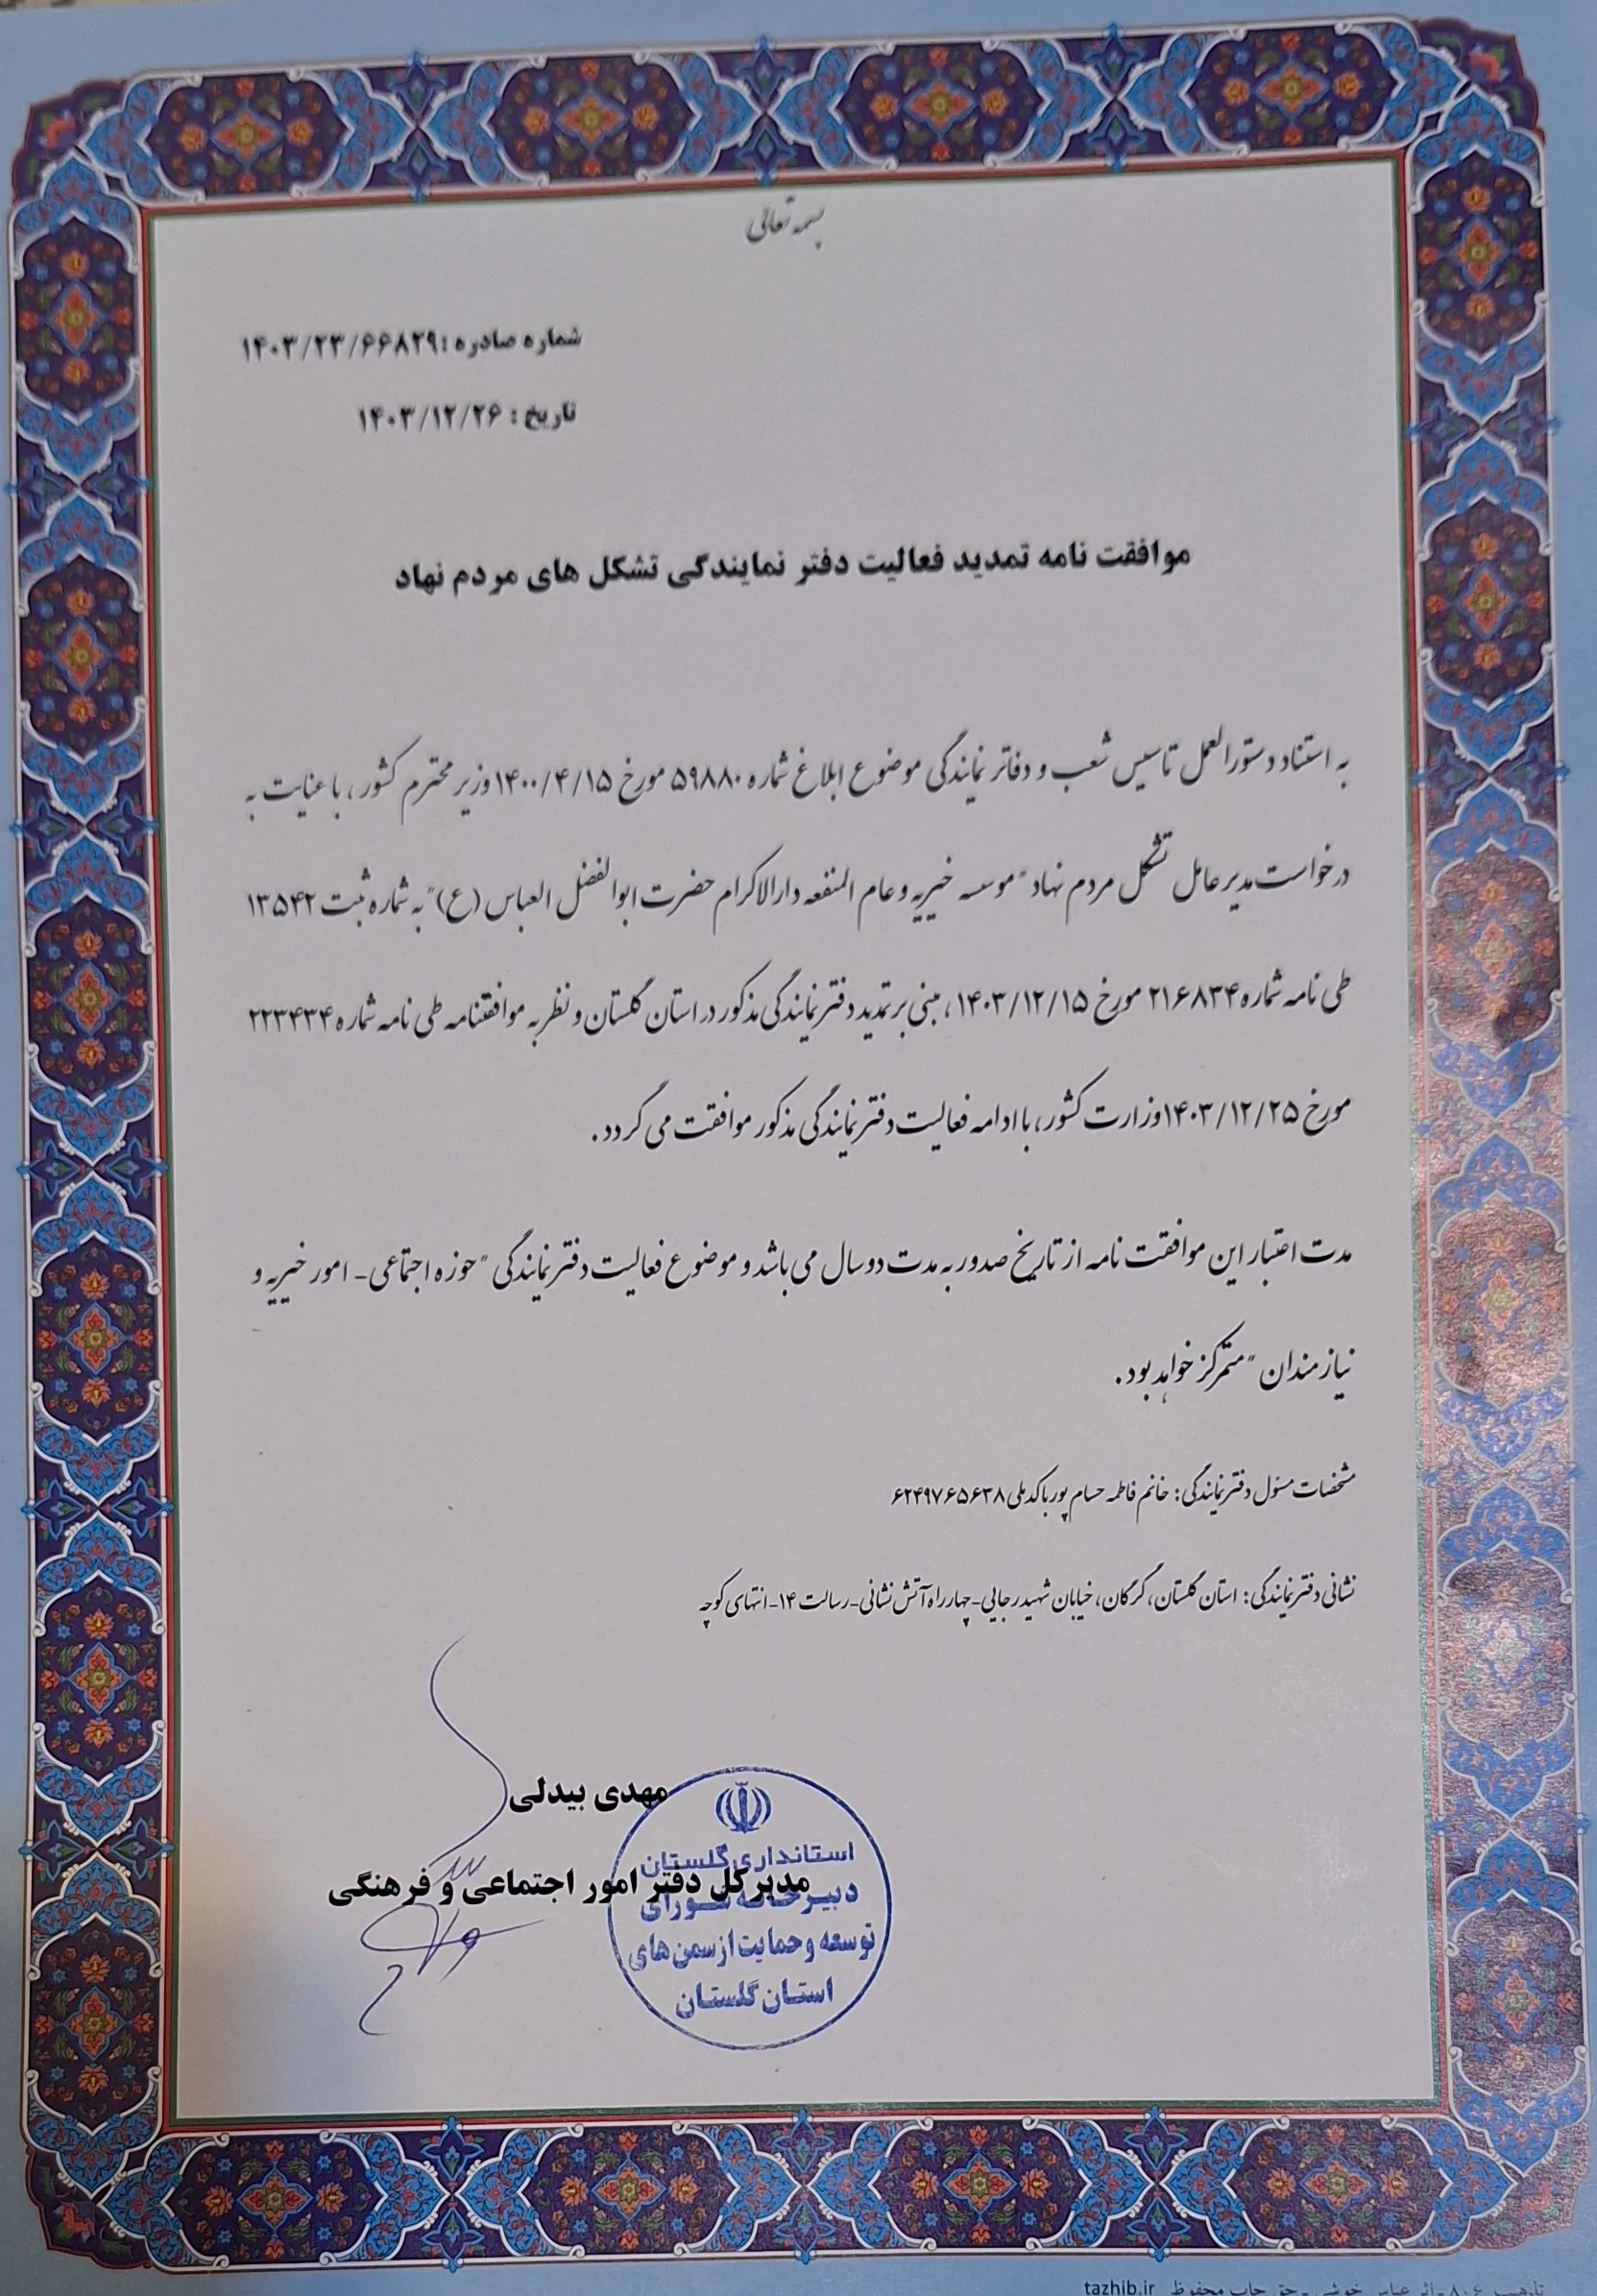 بسمه تعالی
شماره صادره :۱۴۰۳/۲۳/۶۶۸۲۹
تاریخ : ۱۴۰۳/۱۲/۲۶
موافقت نامه تمدید فعالیت دفتر نمایندگی تشکل های مردم نهاد
به استناد دستورالعمل تاسیس شعب و دفاتر نمایندگی موضوع ابلاغ شماره ۵۹۸۸۰ مورخ ۱۴۰۰/۴/۱۵ وزیر محترم کشور ، با عنایت به
درخواست مدیرعامل تشکل مردم نهاد "موسسه خیریه و عام المنفعه دارالاکرام حضرت ابوالفضل العباس (ع)" به شماره ثبت ۱۳۵۴۲
طی نامه شماره ۲۱۶۸۳۴ مورخ ۱۴۰۳/۱۲/۱۵ ، مبنی بر تمدید دفتر نمایندگی مذکور در استان گلستان و نظر به موافقتنامه طی نامه شماره ۲۲۳۴۳۴
مورخ ۱۴۰۳/۱۲/۲۵ وزارت کشور ، با ادامه فعالیت دفتر نمایندگی مذکور موافقت می گردد .
مدت اعتبار این موافقت نامه از تاریخ صدور به مدت دو سال می باشد و موضوع فعالیت دفتر نمایندگی "حوزه اجتماعی- امور خیریه و
نیازمندان" متمرکز خواهد بود .
مشخصات مسئول دفتر نمایندگی : خانم فاطمه حسام پور با کد ملی ۶۲۴۹۷۶۵۶۳۸
نشانی دفتر نمایندگی : استان گلستان، گرگان، خیابان شهید رجایی-چهارراه آتش نشانی-رسالت ۱۴-انتهای کوچه
مهدی بیدلی
مدیرکل دفتر امور اجتماعی و فرهنگی
استانداری گلستان
دبیرخانه شورای
توسعه و حمایت از سمن های
استان گلستان
تذهیب ۸۰۶-اثر عباس خوشی - حق چاپ محفوظ tazhib.ir